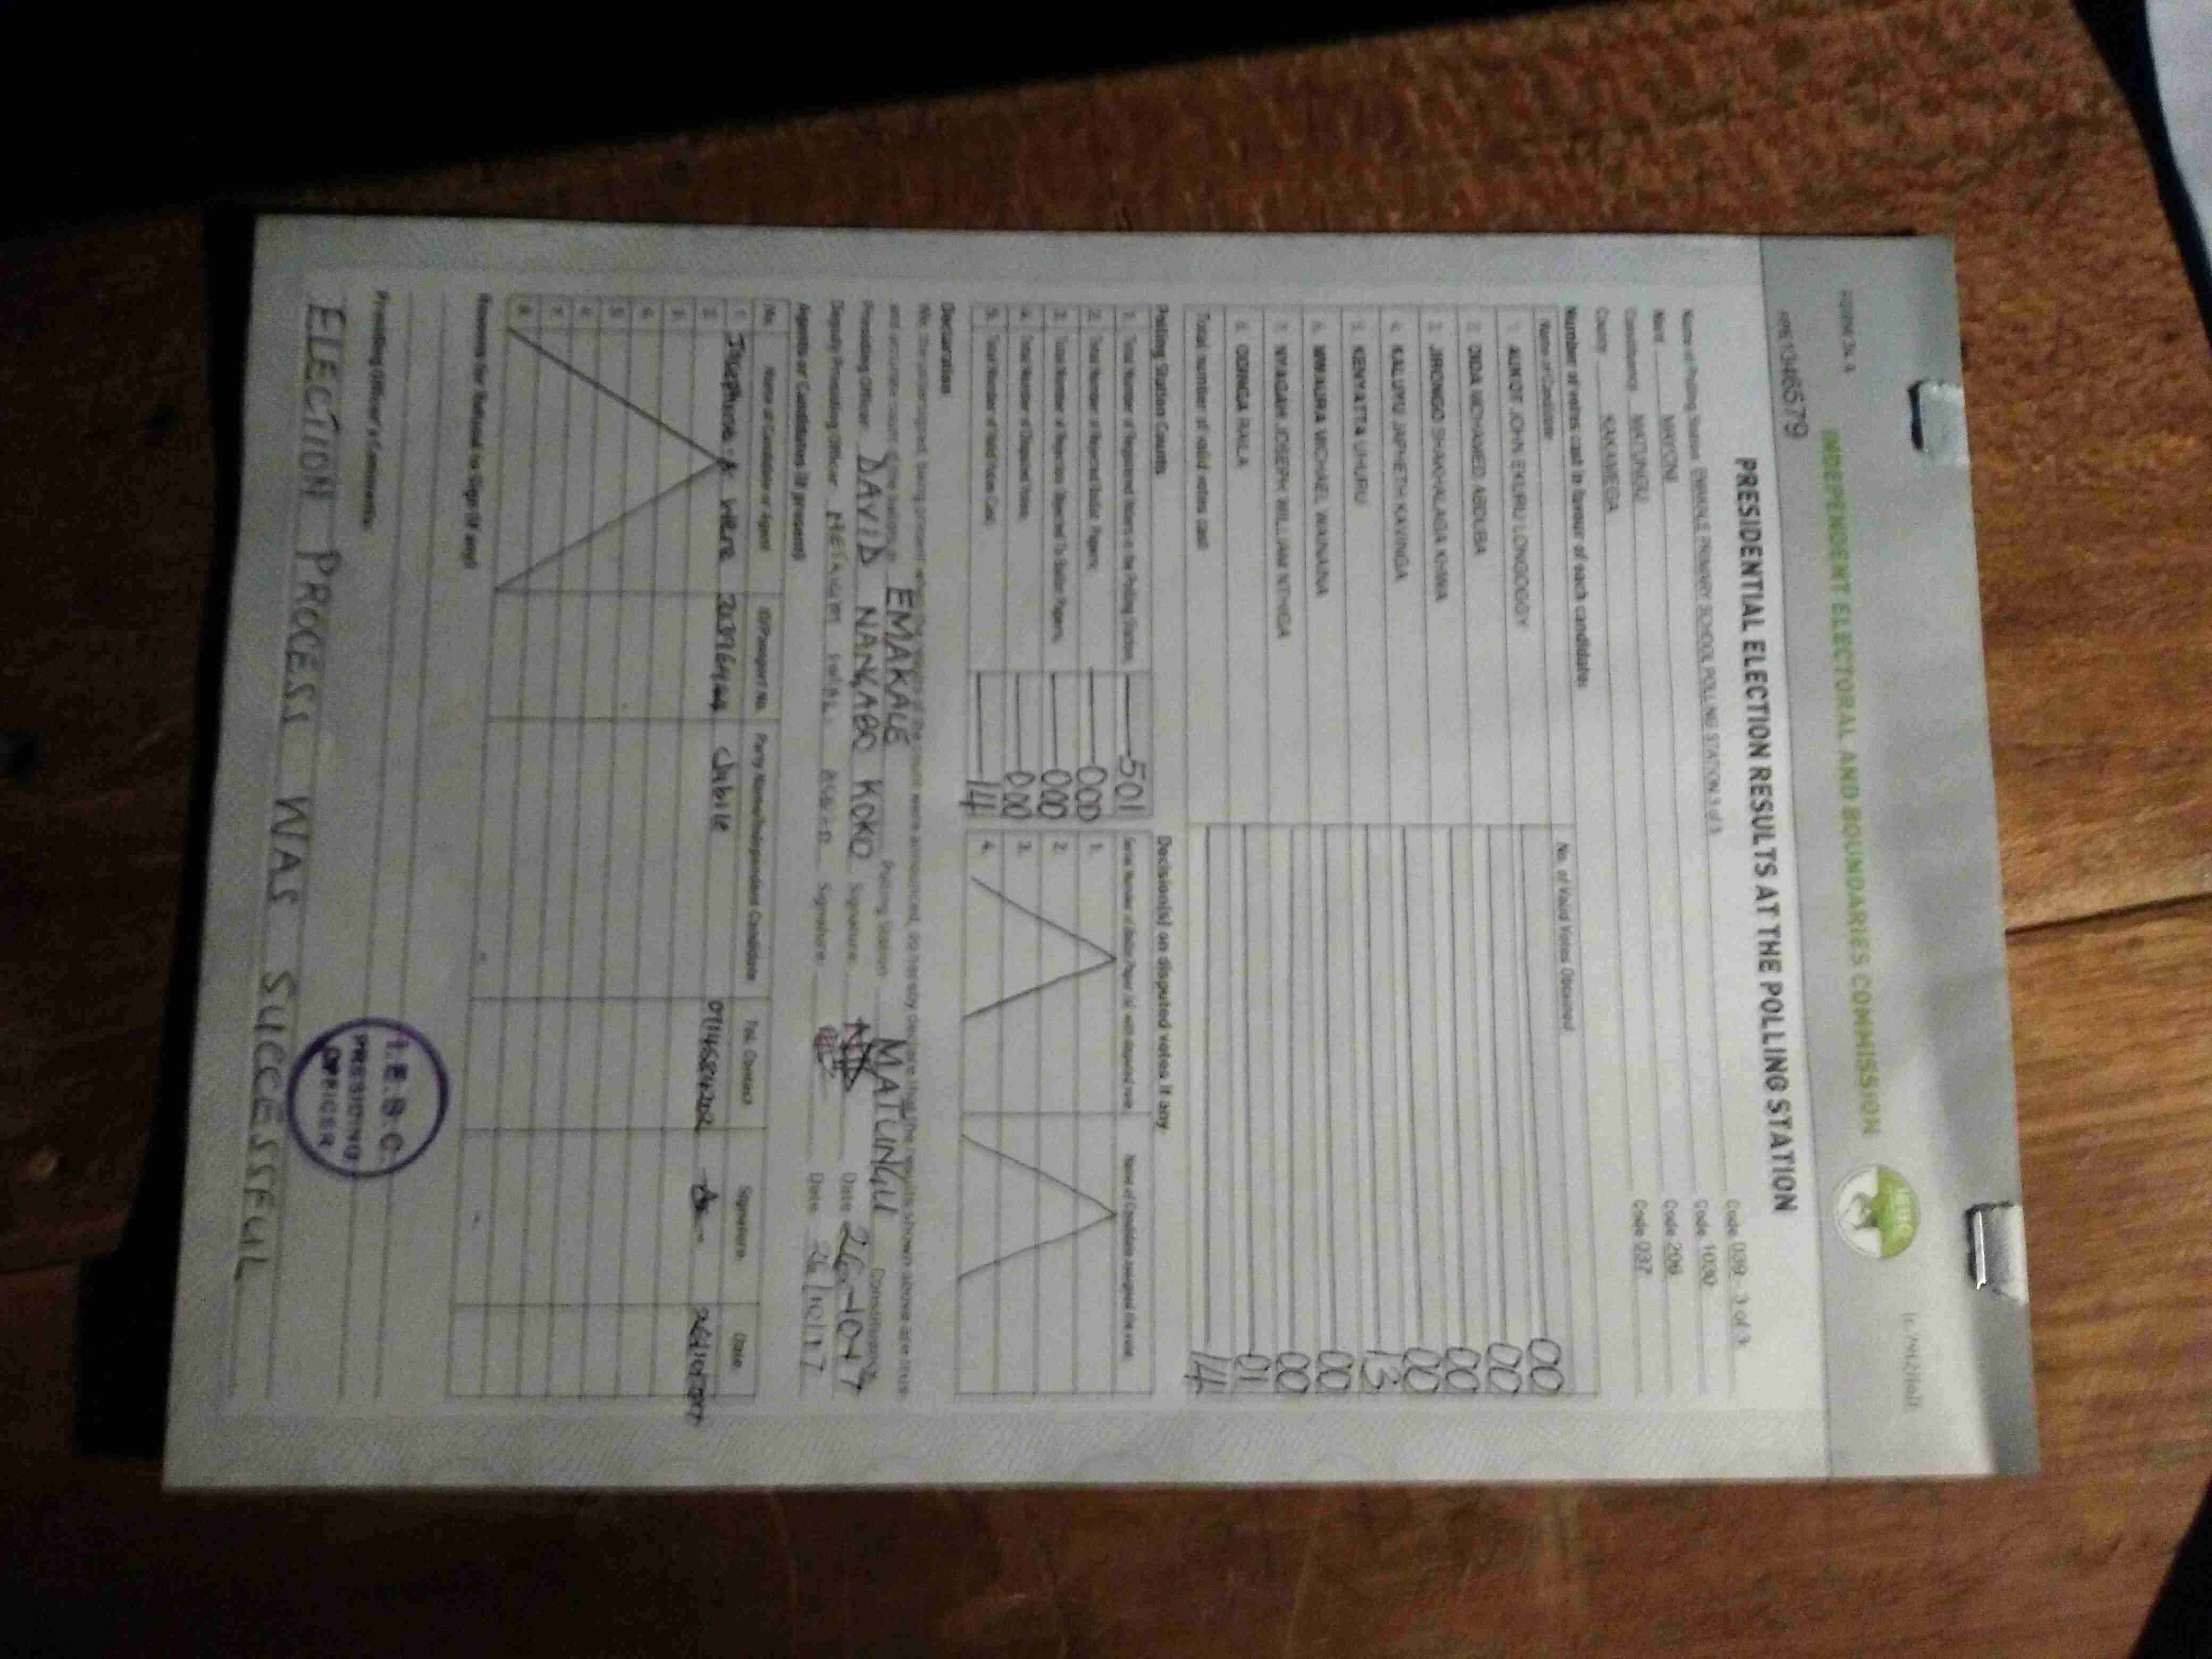 FORM 34 A
INDEPENDENT ELECTORAL AND BOUNDARIES COMMISSION
IEBC
PRESIDENTIAL ELECTION RESULTS AT THE POLLING STATION
Name of Polling Station EMAKALE PRIMARY SCHOOL POLLING STATION 3 of 3 Code 039 3 of 3
Ward MAYONI Code 1030
Constituency MATUNGU Code 206
County KAKAMEGA Code 037
Number of votes cast in favour of each candidates
Name of Candidate No. of Valid Votes Obtained
1. AUKOT JOHN EKURU LONGOGGY 00
2. DIDA MOHAMED ABDUBA 00
3. JIRONGO SHAKHALAGA KHWA 00
4. KALUYU JAPHETH KAVINGA 00
5. KENYATTA UHURU 13
6. MWAURA MICHAEL WAINAINA 00
7. NYAGAH JOSEPH WILLIAM NTHIGA 00
8. ODINGA RAILA 01
Total number of valid votes cast 14
Polling Station Counts
1. Total Number of Registered Voters in the Polling Station 501
2. Total Number of Rejected Ballot Papers 000
3. Total Number of Rejection Objected To Ballot Papers 000
4. Total Number of Disputed Votes 000
5. Total Number of Valid Votes Cast 14
Decision(s) on disputed votes if any
Serial Number of Ballot Paper (s) with disputed vote Name of Candidate assigned the vote
1.
2.
3.
4.
Declaration
We, the undersigned, being present when the results of the count were announced, do hereby declare that the results shown above are true
and accurate count of the ballots in EMAKALE Polling Station MATUNGU Constituency
Presiding Officer DAVID NANGABO KOKO Signature Date 26-10-17
Deputy Presiding Officer Signature Date 26/10/17
Agents or Candidates (if present)
No. Name of Candidate or Agent ID/Passport No. Party Name/Independent Candidate Tel. Contact Signature Date
1. Josephine A Were Jubile
2.
3.
4.
5.
6.
7.
8.
Reasons for Refusal to Sign (if any)
Presiding Officer's Comments:
ELECTION PROCESS WAS SUCCESSFUL
I.E.B.C.
PRESIDING
OFFICER